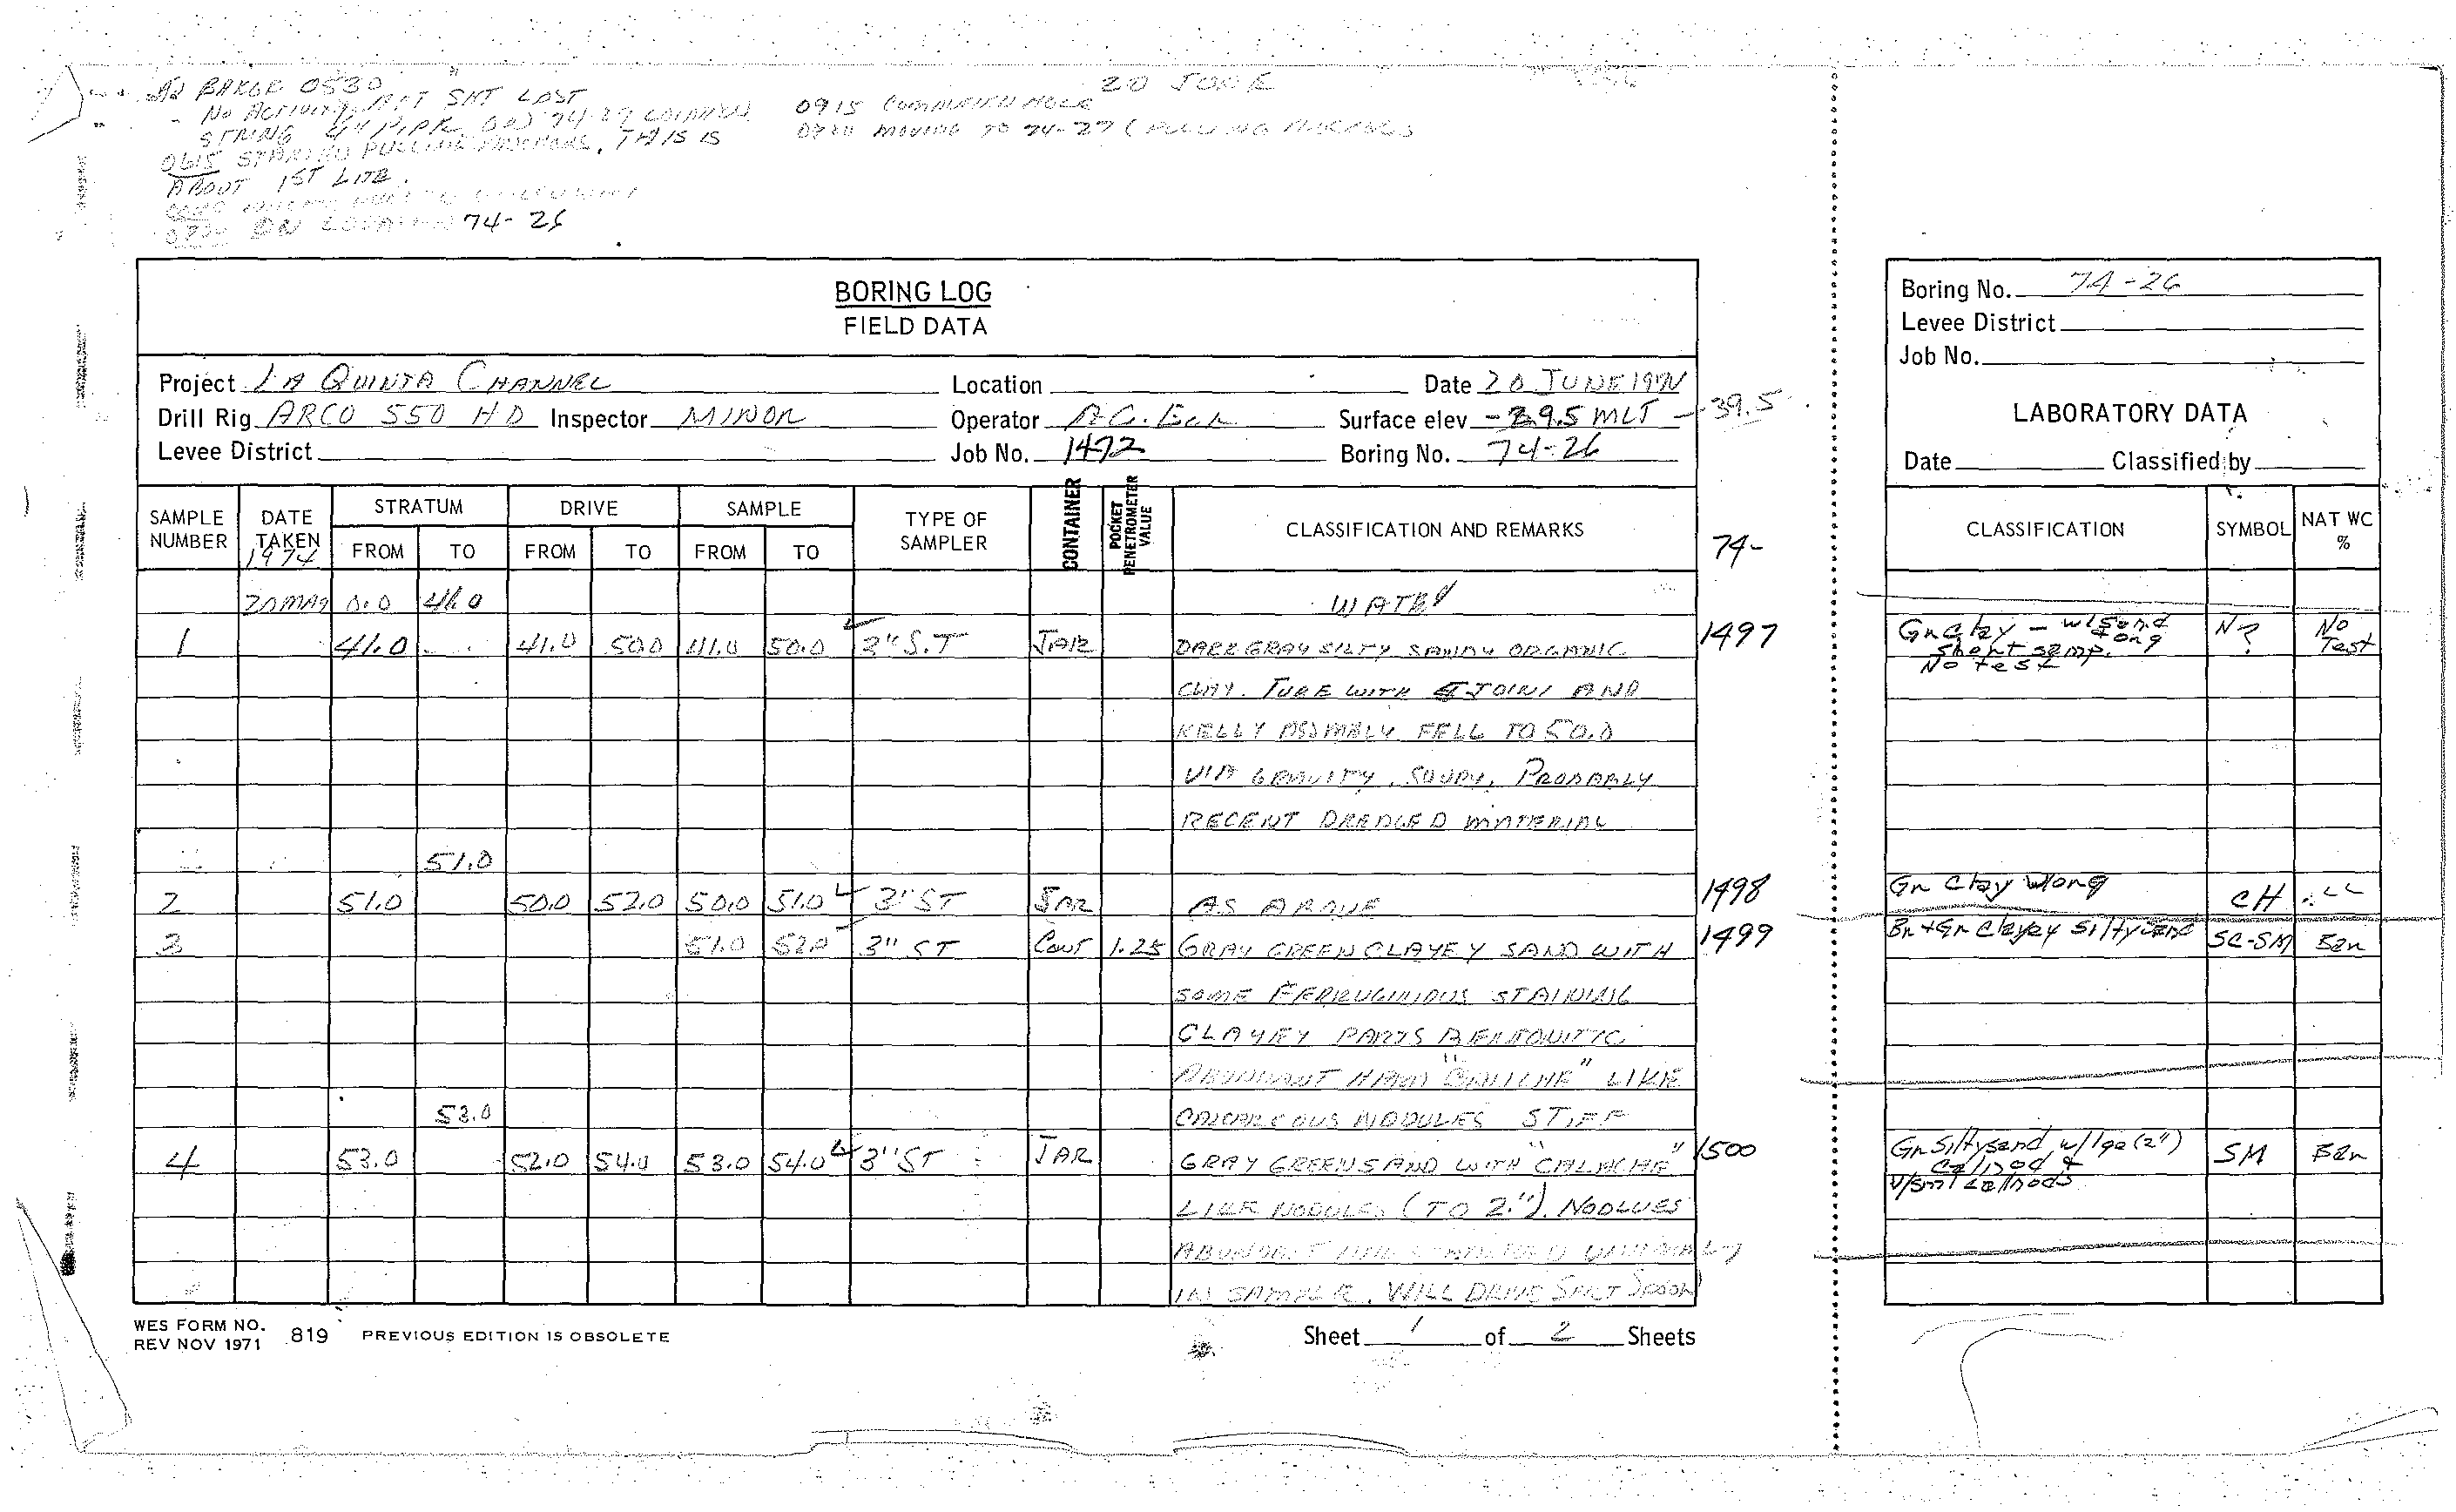 BAKER 0530
20 JUNE
No ACTIVITY SHT LOST
STRING PIPE ON 74-27 LOCATION
0615 STARTED PULLING ANCHORS, THIS IS
ABOUT 1ST LITE.
ON LOCATION 74-26
0915 COMPLETED HOLE
MOVING TO 74-27 (PULLING ANCHORS
BORING LOG
FIELD DATA
Project LA QUINTA CHANNEL Location Date 20 JUNE 1974
Drill Rig ARCO 550 HD Inspector MINOR Operator Surface elev -39.5 MLT -39.5
Levee District Job No. 1472 Boring No. 74-26
SAMPLE NUMBER DATE TAKEN 1974 STRATUM FROM TO DRIVE FROM TO SAMPLE FROM TO TYPE OF SAMPLER CONTAINER POCKET PENETROMETER VALUE CLASSIFICATION AND REMARKS 74-
0.0 41.0 WATER
1 41.0 41.0 50.0 41.0 50.0 3" S.T JAR DARK GRAY SILTY SANDY ORGANIC 1497
CLAY. TUBE WITH JOINT AND
KELLY ASSMBLY FELL TO 50.0
VIA GRAVITY. SOUPY. PROBABLY
RECENT DREDGED MATERIAL
51.0
2 51.0 50.0 52.0 50.0 51.0 3" ST JAR AS ABOVE 1498
3 51.0 52.0 3" ST CONT 1.25 GRAY GREEN CLAYEY SAND WITH 1499
SOME FERRUGINIOUS STAINING
CLAYEY PARTS BENTONITIC
ABUNDANT HARD "CALICHE" LIKE
53.0 CALCAREOUS NODULES STIFF
4 53.0 52.0 54.0 53.0 54.0 3" ST JAR GRAY GREEN SAND WITH "CALACHE" 1500
LIKE NODULES (TO 2"). NODLUES
IN SAMPLE. WILL DRIVE SPLIT SPOON
WES FORM NO. 819 PREVIOUS EDITION IS OBSOLETE
REV NOV 1971
Sheet 1 of 2 Sheets
Boring No. 74-26
Levee District
Job No.
LABORATORY DATA
Date Classified by
CLASSIFICATION SYMBOL NAT WC %
Gn clay - w/sand & org N? No Test
short samp.
No test
Gn clay w/org CH
Bn + Gn clayey silty sand SC-SM Ban
Gn silty sand w/lge (2") SM Ban
calnod &
v/sml calnods